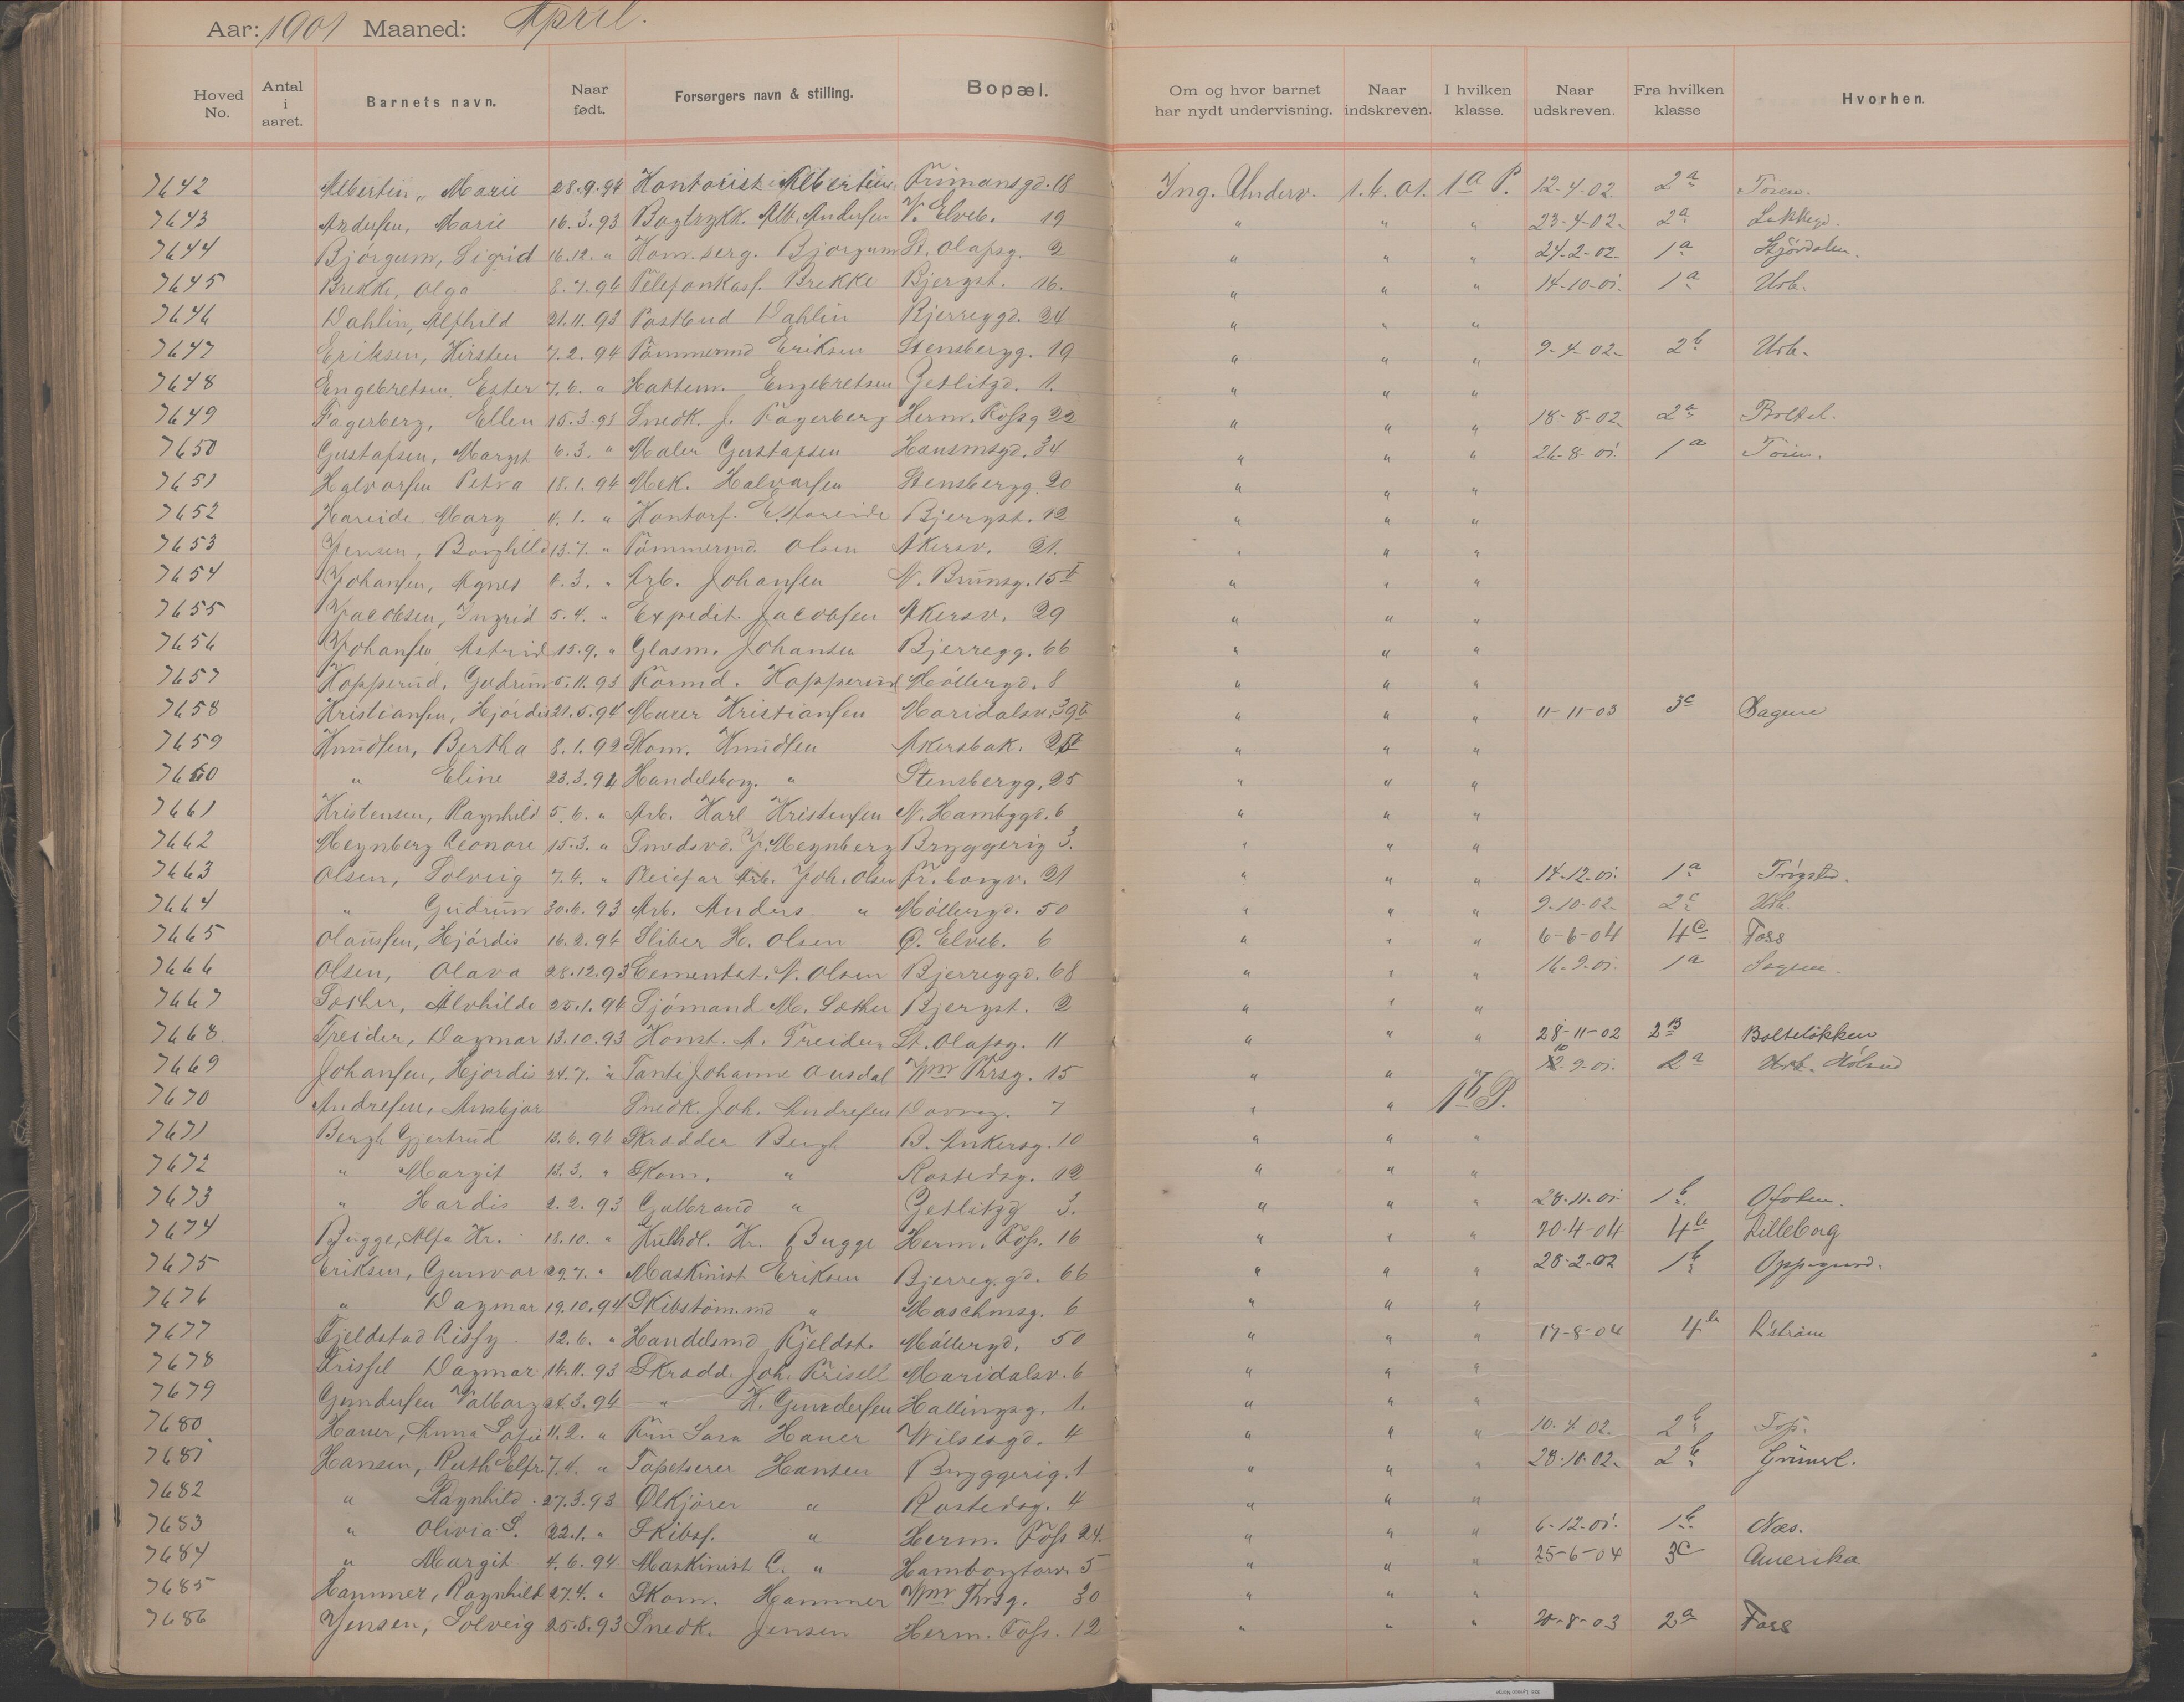 Aar: 1901 Maaned: April.
Hoved No. Antal i aaret. Barnets navn. Naar født. Forsørgers navn & stilling. Bopæl. Om og hvor barnet har nydt undervisning. Naar indskreven. I hvilken klasse. Naar udskreven. Fra hvilken klasse Hvorhen.
7642 Albertin, Marie 28.9.94 Kontorist Albertin Frimansgd. 18 Ing. Underv. 1.4.01. 1a P. 12-4-02. 2a Tøien.
7643 Andersen, Marie 16.3.93 Bogtrykk. Alb. Andersen V. Elveb. 19 " " " 23-4-02. 2a Lakkegd.
7644 Bjørgum, Sigrid 16.12. " Kom. serg. Bjørgum St. Olafsg. 2 " " " 24-2-02. 1a Stjørdalen.
7645 Brekke, Olga 8.7.94 Telefonkasf. Brekke Bjergst. 16. " " " 14-10-01. 1a Urb.
7646 Dahlin, Alfhild 21.11.93 Postbud Dahlin Bjerregd. 24 " " "
7647 Eriksen, Kirsten 7.2.94 Tømmermd Eriksen Stensbergg. 19 " " " 9-4-02- 2b Urb.
7648 Engebretsen, Ester 7.6. " Hattem. Engebretsen Getlitzgd. 1. " " "
7649 Fagerberg, Ellen 15.3.93 Snedk. J. Fagerberg Herm. Fossg 22 " " " 18-8-02 2a Boltel.
7650 Gustafsen, Margit 6.3. " Maler Gustafsen Hausmsgd. 34 " " " 26-8-01. 1a Tøien.
7651 Halvorsen Petra 18.1.94 Mek. Halvorsen Stensbergg. 20 " " "
7652 Hareide Mary 4.1. " Kontorf. E. Hareide Bjergst. 12 " " "
7653 Jensen, Borghild 13.7. " Tømmermd. Olsen Akersv. 21. " " "
7654 Johansen, Agnes 4.3. " Arb. Johansen N. Brunsg. 15b " " "
7655 Jacobsen, Ingrid 5.4. " Expedit. Jacobsen Akersv. 29 " " "
7656 Johansen Astrid 15.9. " Glasm. Johansen Bjerregg. 66 " " "
7657 Kopperud, Gudrun 5.11.93 Formd. Kopperud Møllergd. 8 " " "
7658 Kristiansen, Hjørdis 21.5.94 Murer Kristiansen Maridalsv. 39b " " " 11-11-03 3c Sagene
7659 Knudsen, Bertha 8.1.92 Skom. Knudsen Akersbak. " " "
7660 " Eline 23.3.94 Handelsborg. " Stensbergg. 25 " " "
7661 Kristensen, Ragnhild 5.6. " Arb. Karl Kristensen N. Hambggd. 6 " " "
7662 Meynberg Leonore 15.3. " Smedsvd. J. Meynberg Bryggerig 3. " " "
7663 Olsen, Solveig 7.4. " Reisfar Arb. Joh. Olsen Fr. borgv. 21 " " " 14-12-01. 1a Trøgstad.
7664 " Gudrun 30.6.93 Arb. Anders " Møllergd. 50 " " " 9-10-02. 2c Urb.
7665 Olaussen, Hjørdis 16.2.94 Sliber H. Olsen Ø. Elveb. 6 " " " 6-6-04 4c Foss
7666 Olsen, Olava 28.12.93 Cementst. N. Olsen Bjerregd. 68 " " " 16-9-01. 1a Sagene.
7667 Sæther, Alvhilde 25.1.94 Sjømand M. Sæther Bjergst. 2 " " "
7668 Treider, Dagmar 13.10.93 Konst. A. Treider St. Olafsg. 11 " " " 28-11-02 2B Bolteløkken
7669 Johansen, Hjordis 24.7. " Tante Johanne Ausdal Wm Thrsg. 15 " " " 10-9-01. 2a Urb. Hølend
7670 Andresen, Ansbjør Snedk. Joh. Andresen Dovreg. 7 " " 1b P.
7671 Bergh Gjertrud 13.6.94 Skrædder Bergh B. Ankersg. 10 " " "
7672 " Margit 13.3. " Skom. " Rostedsg. 12 " " "
7673 " Hardis 2.2.93 Gulbrand " Getlitzg 3. " " " 28-11-01 1b Ofoten.
7674 Bugge, Alfa Kr. 18.10. " Kulhdl. Kr. Bugge Herm. Foss. 16 " " " 20-4-04 4b Lilleborg
7675 Eriksen, Gunvor 29.7. " Maskinist Eriksen Bjerreg.gd. 66 " " " 28-2-02 1b Oppegaard.
7676 " Dagmar 19.10.94 Skibstøm.md " Maschmsg. 6 " " "
7677 Fjeldstad Lissy 12.6. " Handelsmd Fjeldst. Møllergd. 50 " " " 17-8-04 4b
7678 Frissel Dagmar 14.11.93 Skrædd. Joh. Frisell Maridalsv. 6 " " "
7679 Gundersen Valborg 24.3.94 " K. Gundersen Hallingsg. 1. " " "
7680 Hauer, Anna Sofie 11.2. " Fru Sara Hauer Wilsesgd. 4 " " " 10-4-02. 2b Fos.
7681 Hansen, Ruth Elfr. 7.4. " Tapetserer Hansen Bryggerig. 1 " " " 28-10-02. 2b Grünerl.
7682 " Ragnhild 27.3.93 Ølkjører " Rostedsg. 4 " " "
7683 " Olivia S. 22.1. " Skibsf. " Herm. Foss 24. " " " 6-12-01. 1b Næs.
7684 " Margit 4.6.94 Maskinist C. " Hamborgtorv. 5 " " " 25-6-04 3c Amerika
7685 Hammer, Ragnhild 27.4. " Skom. Hammer Wm Thrsg. 30 " " "
7686 Jensen, Solveig 25.8.93 Snedk. Jensen Herm. Foss. 12 " " " 20-8-03 2a Foss